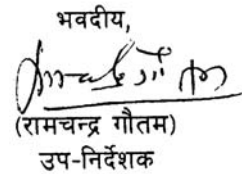 भवदीय,
(रामचन्द्र गौतम)
उप-निर्देशक